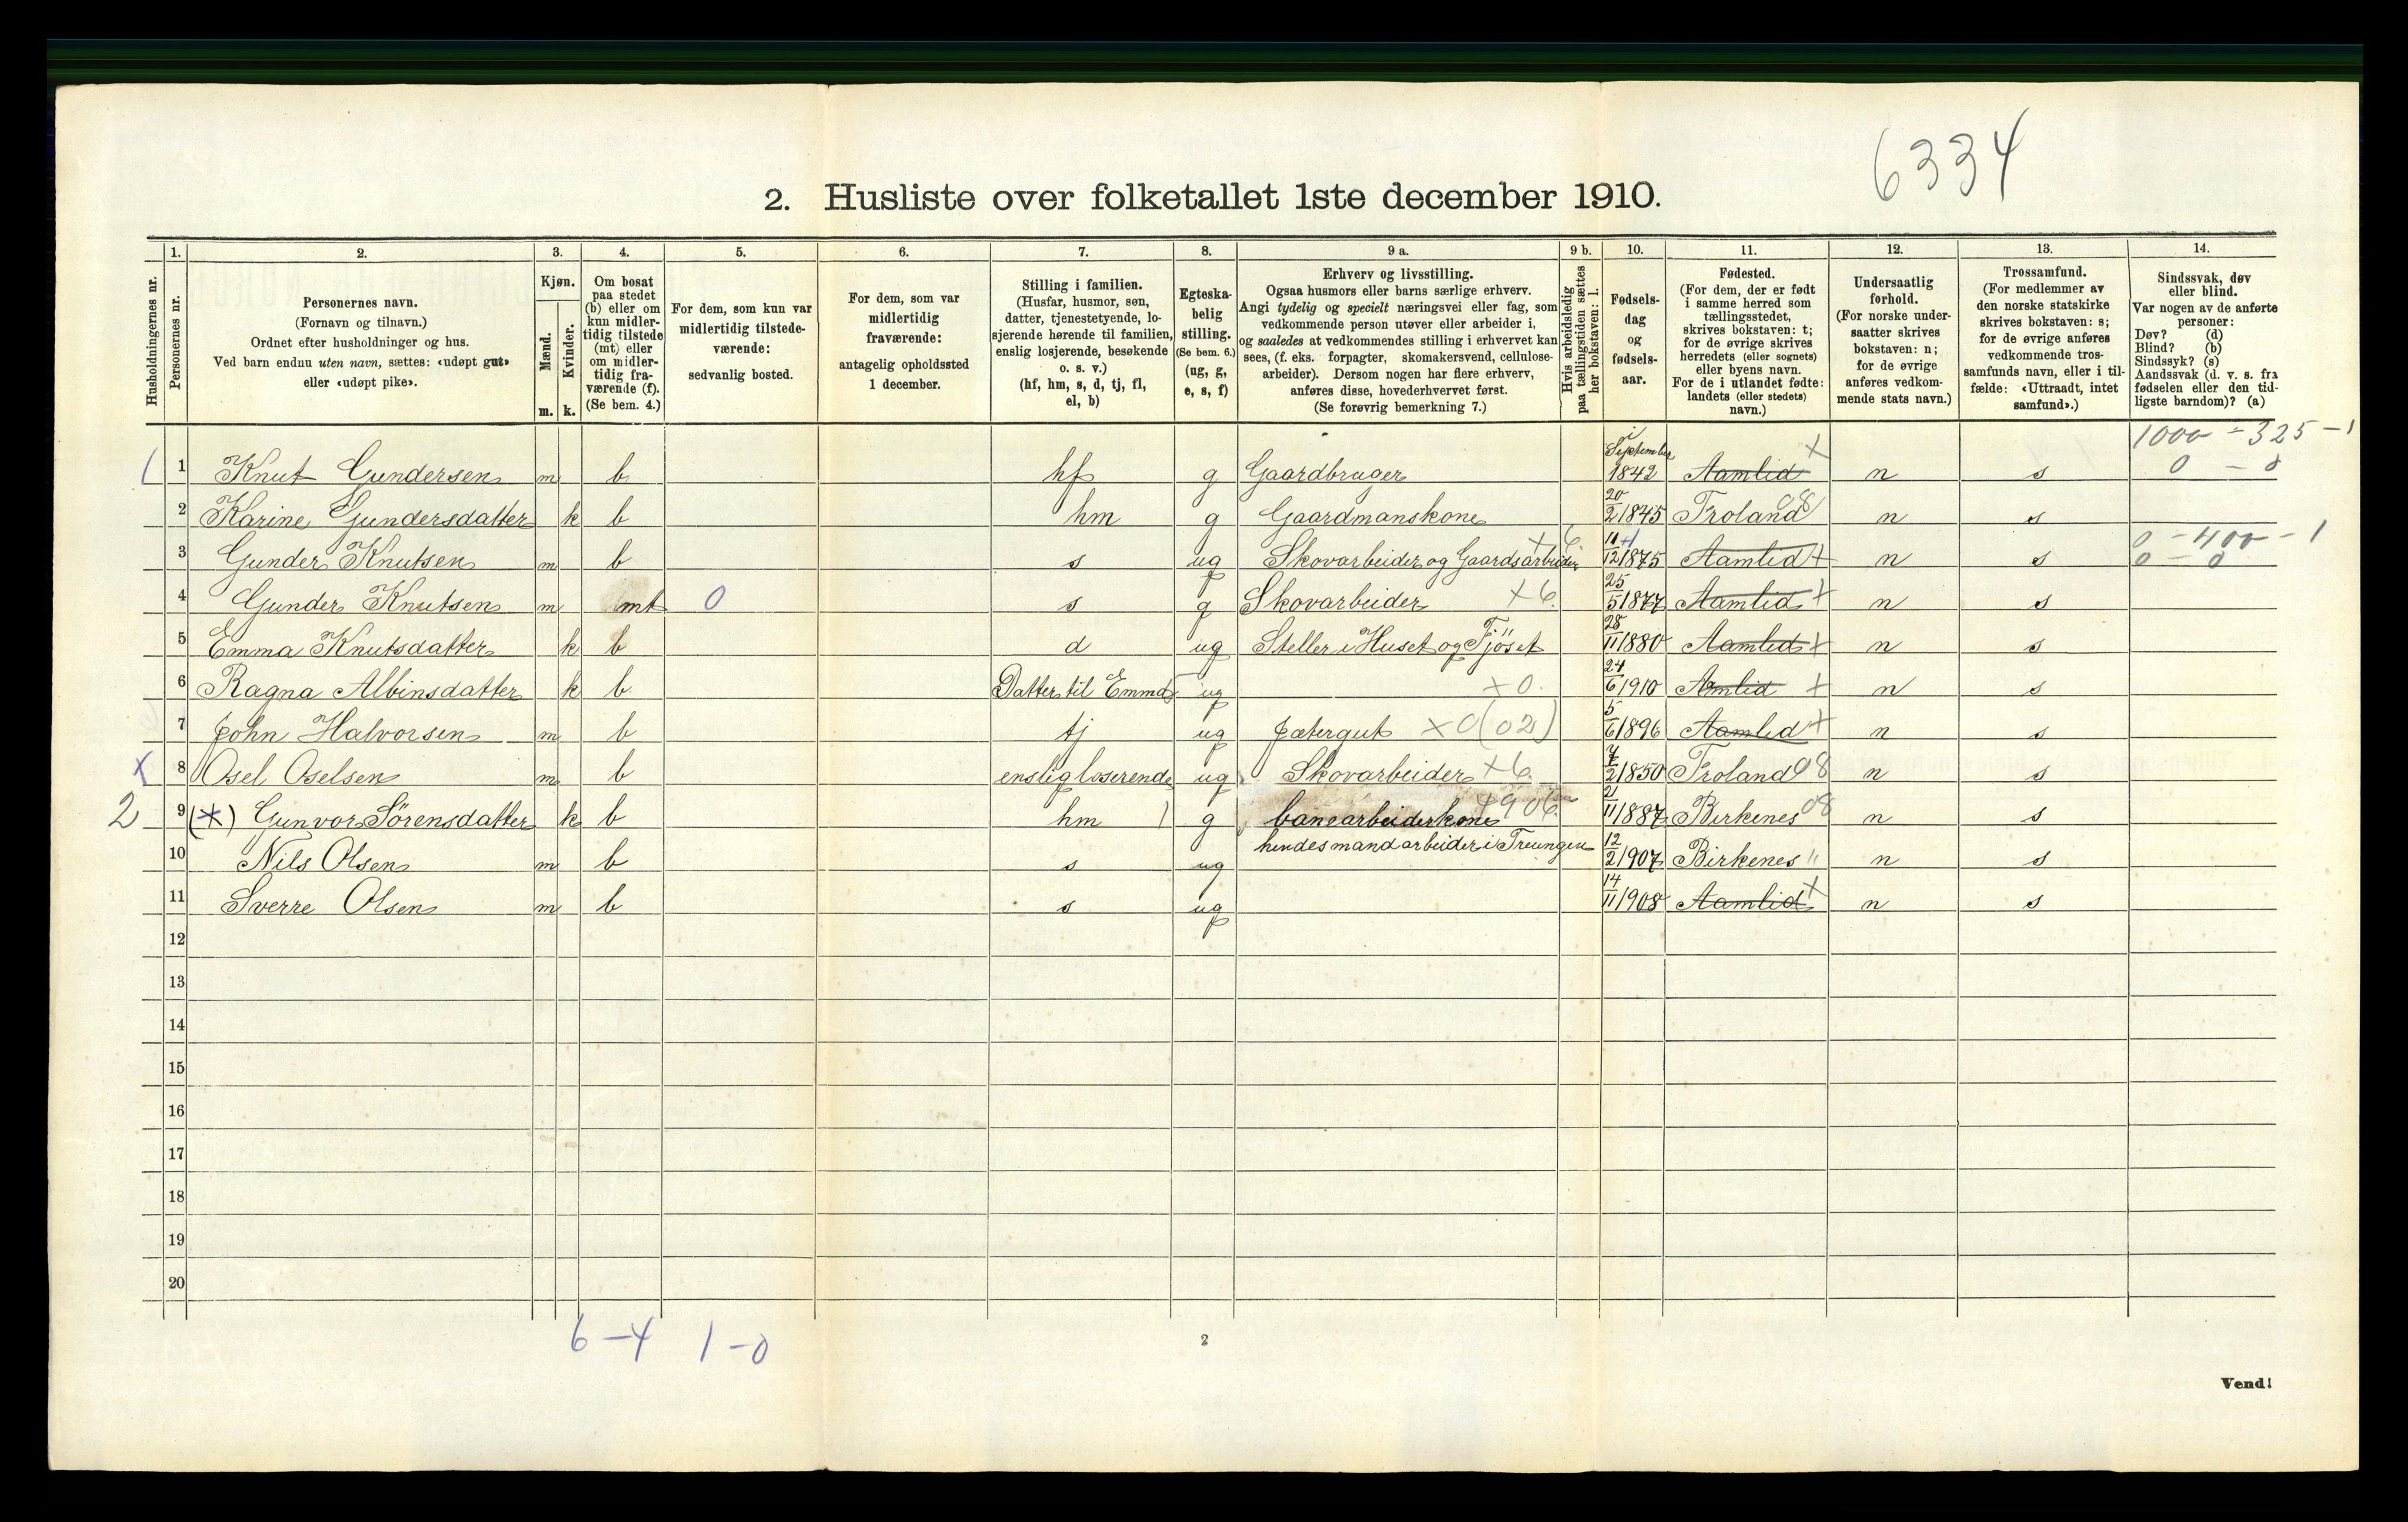 6334
2. Husliste over folketallet 1ste december 1910.
Husholdningernes nr.
1. Personernes nr.
2. Personernes navn.
(Fornavn og tilnavn.)
Ordnet efter husholdninger og hus.
Ved barn endnu uten navn, sættes: «udøpt gut»
eller «udøpt pike».
3. Kjøn.
Mænd. m.
Kvinder. k.
4. Om bosat
paa stedet
(b) eller om
kun midler-
tidig tilstede
(mt) eller
om midler-
tidig fra-
værende (f).
(Se bem. 4.)
5. For dem, som kun var
midlertidig tilstede-
værende:
sedvanlig bosted.
6. For dem, som var
midlertidig
fraværende:
antagelig opholdssted
1 december.
7. Stilling i familien.
(Husfar, husmor, søn,
datter, tjenestetyende, lo-
sjerende hørende til familien,
enslig losjerende, besøkende
o. s. v.)
(hf, hm, s, d, tj, fl,
el, b)
8. Egteska-
belig
stilling.
(Se bem. 6.)
(ug, g,
e, s, f)
9 a. Erhverv og livsstilling.
Ogsaa husmors eller barns særlige erhverv.
Angi tydelig og specielt næringsvei eller fag, som
vedkommende person utøver eller arbeider i,
og saaledes at vedkommendes stilling i erhvervet kan
sees, (f. eks. forpagter, skomakersvend, cellulose-
arbeider). Dersom nogen har flere erhverv,
anføres disse, hovederhvervet først.
(Se forøvrig bemerkning 7.)
9 b. Hvis arbeidsledig
paa tællingstiden sættes
her bokstaven: l.
10. Fødsels-
dag
og
fødsels-
aar.
11. Fødested.
(For dem, der er født
i samme herred som
tællingsstedet,
skrives bokstaven: t;
for de øvrige skrives
herredets (eller sognets)
eller byens navn.
For de i utlandet fødte:
landets (eller stedets)
navn.)
12. Undersaatlig
forhold.
(For norske under-
saatter skrives
bokstaven: n;
for de øvrige
anføres vedkom-
mende stats navn.)
13. Trossamfund.
(For medlemmer av
den norske statskirke
skrives bokstaven: s;
for de øvrige anføres
vedkommende tros-
samfunds navn, eller i til-
fælde: «Uttraadt, intet
samfund».)
14. Sindssvak, døv
eller blind.
Var nogen av de anførte
personer:
Døv? (d)
Blind? (b)
Sindssyk? (s)
Aandssvak (d. v. s. fra
fødselen eller den tid-
ligste barndom)? (a)
1 1 Knut Gundersen m b hf g Gaardbruger i September 1842 Aamlid + n s 1000 - 325 - 1 0 - 0
2 Karine Gundersdatter k b hm g Gaardmanskone 20/2 1845 Froland 08 n s
3 Gunder Knutsen m b s ug Skovarbeider og Gaardsarbeider + 6 11/12 1875 Aamlid + n s 0 - 400 - 1 0 - 0
4 Gunder Knutsen m mt 0 s g Skovarbeider + 6. 25/5 1877 Aamlid + n s
5 Emma Knutsdatter k b d ug Steller i Huset og Fjöset 28/11 1880 Aamlid + n s
6 Ragna Albinsdatter k b Datter til Emma ug + 0. 24/6 1910 Amlid + n s
7 John Halvorsen m b tj ug Jætergut + 0 (02) 5/6 1896 Aamlid + n s
x 8 Osel Oselsen m b enslig loserende ug Skovarbeider + 6. 7/2 1850 Froland 08 n s
2 9 (*) Gunvor Sörensdatter k b hm 1 g banearbeiderkone + 906 21/11 1887 Birkenes 08 n s
hendes mand arbeider i Treungen
10 Nils Olsen m b s ug 12/2 1907 Birkenes " n s
11 Sverre Olsen m b s ug 14/11 1908 Aamlid + n s
12
13
14
15
16
17
18
19
20
6 - 4 1 - 0
2
Vend!